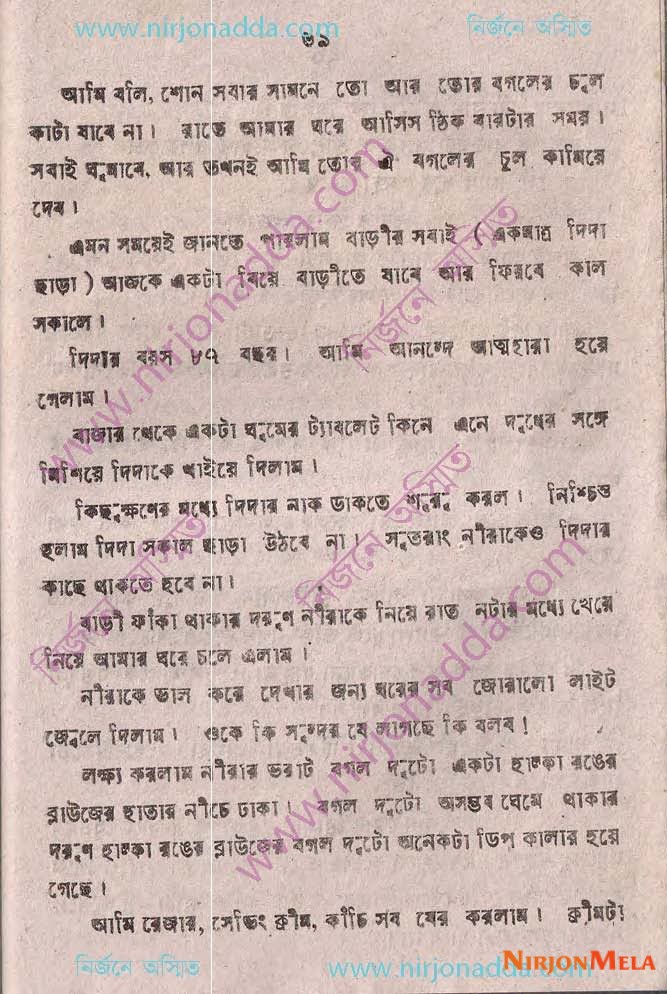 www.nirjonadda.com
নির্জনে অস্মিত
৬৯
আমি বলি, শোন সবার সামনে তো আর তোর বগলের চুল
কাটা যাবে না। রাতে আমার ঘরে আসিস ঠিক বারটার সময়।
সবাই ঘুমাবে, আর তখনই আমি তোর ঐ বগলের চুল কামিয়ে
দেব।
এমন সময়েই জানতে পারলাম বাড়ীর সবাই ( একমাত্র দিদা
ছাড়া ) আজকে একটা বিয়ে বাড়ীতে যাবে আর ফিরবে কাল
সকালে।
দিদার বয়স ৮৭ বছর। আমি আনন্দে আত্মহারা হয়ে
গেলাম।
বাজার থেকে একটা ঘুমের ট্যাবলেট কিনে এনে দুধের সঙ্গে
মিশিয়ে দিদাকে খাইয়ে দিলাম।
কিছুক্ষণের মধ্যে দিদার নাক ডাকতে শুরু করল। নিশ্চিত
হলাম দিদা সকাল ছাড়া উঠবে না। সুতরাং নীরাকেও দিদার
কাছে থাকতে হবে না।
বাড়ী ফাঁকা থাকার দরুণ নীরাকে নিয়ে রাত নটার মধ্যে খেয়ে
নিয়ে আমার ঘরে চলে এলাম।
নীরাকে ভাল করে দেখার জন্য ঘরের সব জোরালো লাইট
জেলে দিলাম। ওকে কি সুন্দর যে লাগছে কি বলব!
লক্ষ্য করলাম নীরার ভরাট বগল দুটো একটা হাল্কা রঙের
ব্লাউজের হাতার নীচে ঢাকা। বগল দুটো অসম্ভব ঘেমে থাকার
দরুণ হাল্কা রঙের ব্লাউজের বগল দুটো অনেকটা ডিপ কালার হয়ে
গেছে।
আমি রেজার, সেভিং ক্রীম, কাঁচি সব বের করলাম। ক্রীমটা
www.nirjonadda.com
নির্জনে অস্মিত
নির্জনে অস্মিত
নির্জনে অস্মিত
www.nirjonadda.com
নির্জনে অস্মিত
www.nirjonadda.com
NIRJONMELA